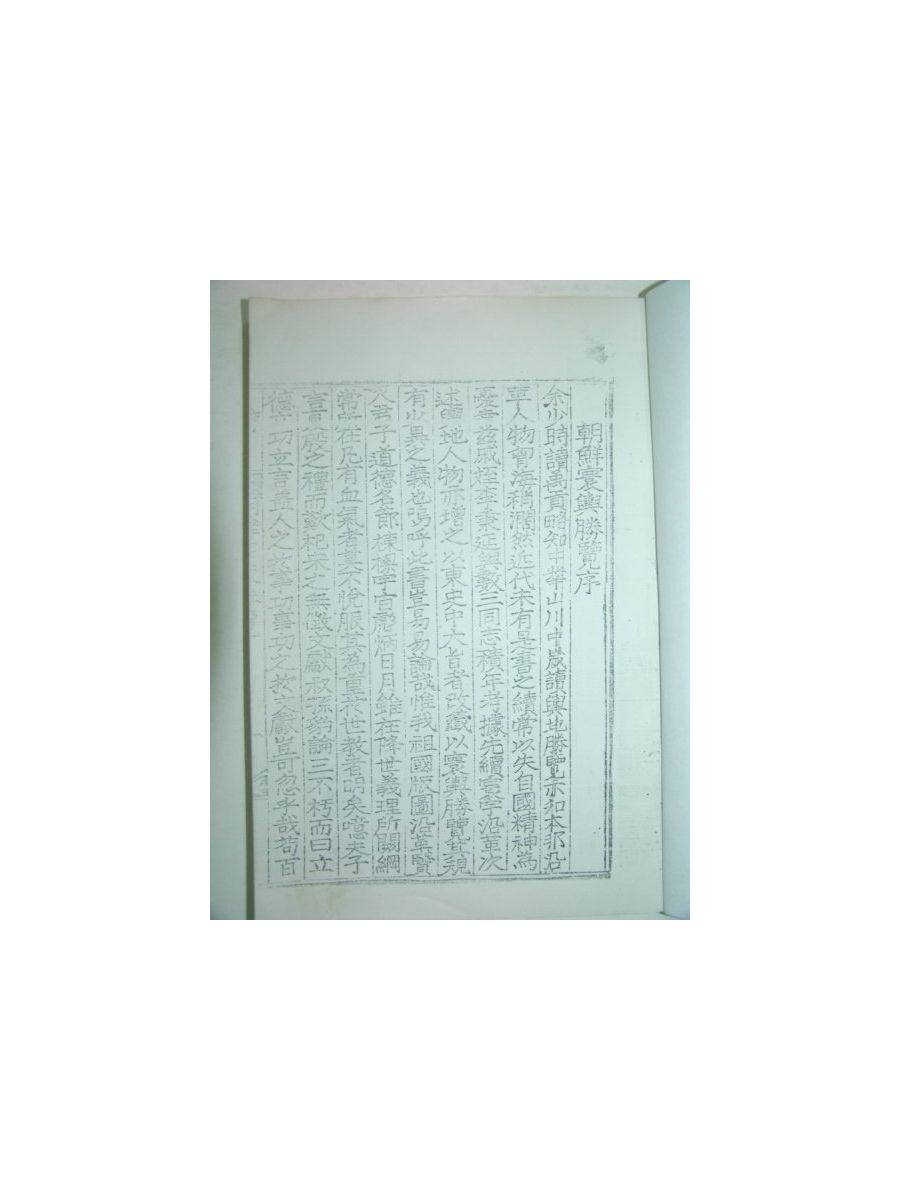 朝鮮寰輿勝覽序
余少時讀禹貢略知中華山川中歲讀輿地勝覽亦知本邦沿
革人物曾海稍濶然近代未有是書之續常以失自國精神為
憂竟茲戚姪李秉延與數三同志積年考據先續寰宇沿革次
述輿地人物亦增之以東史中大旨者改籤以寰輿勝覽其規
有少異之義也嗚呼此書豈易易論哉惟我祖國版圖沿革賢
人君子道德名節棟樑宇宙彪炳日月雖在降世義理所關綱
常所在凡有血氣者莫不脫服其為重於世教者明矣噫夫子
言夏殷之禮而歎杞宋之無徵文獻叔孫豹論三不朽而曰立
德立功立言盖人之於事功事功之於文獻豈可忽乎哉苟百